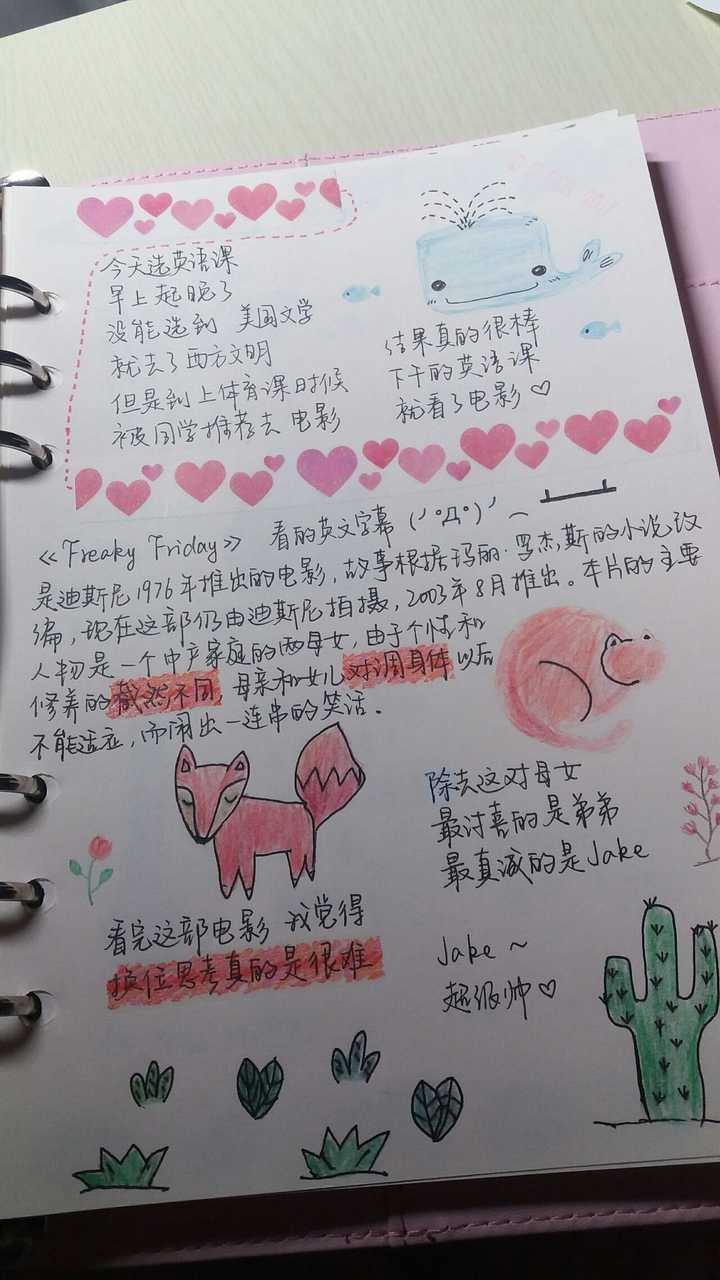 今天选英语课
早上起晚了
没能选到 美国文学
就去了西方文明
但是到上体育课时候
被同学推荐去 电影
结果真的很棒
下午的英语课
就看了电影♡
《Freaky Friday》 看的英文字幕 (╯°Д°)╯︵ ┻━┻
是迪斯尼1976年推出的电影，故事根据玛丽·罗杰斯的小说改
编，现在这部仍由迪斯尼拍摄，2003年8月推出。本片的主要
人物是一个中产家庭的两母女，由于个性和
修养的截然不同，母亲和女儿对调身体以后
不能适应，而闹出一连串的笑话。
除去这对母女
最讨喜的是弟弟
最真诚的是Jake
看完这部电影 我觉得
换位思考真的是很难
Jake ~
超级帅♡